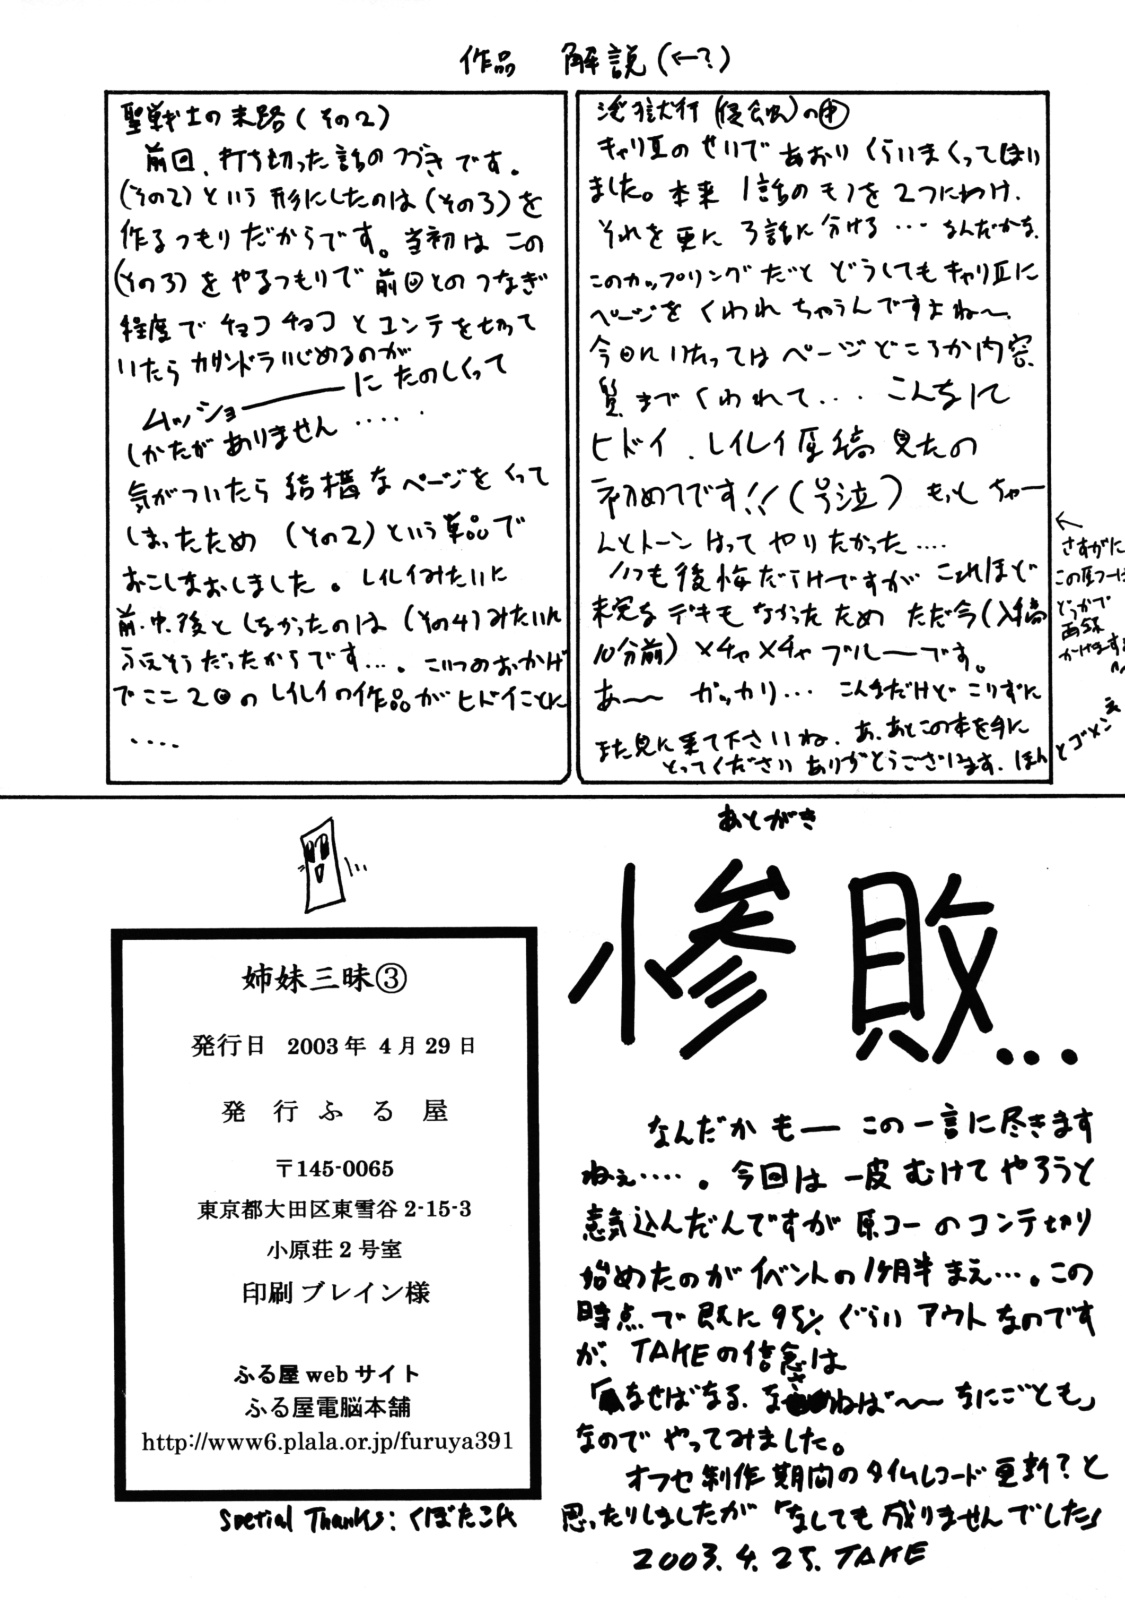 作品 解説(←?)
聖戦士の末路(その2)
前回、打ち切った話のつづきです。
(その2)という形にしたのは(その3)を
作るつもりだからです。当初はこの
(その3)をやるつもりで前回とのつなぎ
程度でチョコチョコとコンテを切って
いたらカサンドラいじめるのが
ムッショーーーに たのしくって
しかたがありません・・・・・
気がついたら結構なページをくって
しまったため(その2)という単品で
おこしなおしました。レイレイみたいに
前・中・後としなかったのは(その4)みたいに
ふえそうだったからです・・・。こいつのおかげ
でここ2回のレイレイの作品がヒドイことに
・・・・
淫獄行(侵食)の中
キャリエのせいであおりくらいまくってはい
ました。本来1話のモノを2つにわけ、
それを更に3話に分ける・・・なんだかな。
このカップリングだとどうしてもキャリエに
ページをくわれちゃうんですよね〜。
今回にいたってはページどころか内容、
質までくわれて・・・こんなに
ヒドイ、レイレイ原稿見たの
初めてです!!(号泣)もっとちゃー
んとトーンはってやりたかった・・・・
いつも後悔だらけですがこれほど
未完なデキもなかったためただ今(入稿
10分前)メチャメチャブルーです。
あ〜〜ガッカリ・・・こんなだけどこりずに
また見に来て下さいね、あ、あとこの本を手に
とってくださいありがとうございます、ほんとゴメンネ
←
さすがに
この原コーは
どっかで
再録
かけますよ
あとがき
惨敗...
なんだかもーこの一言に尽きます
ねぇ・・・・・。今回は一皮むけてやろうと
意気込んだんですが原コーのコンテ切り
始めたのがイベントの1ヶ月半まえ・・・。この
時点で既に95%ぐらいアウトなのです
が、TAKEの信念は
「なせばなる、なさねば〜〜なにごとも」
なのでやってみました。
オフセ制作期間のタイムレコード更新?と
思ったりしましたが「なしても成りませんでした」
2003.4.25.TAKE
姉妹三昧③
発行日 2003年4月29日
発行 ふる屋
〒145-0065
東京都大田区東雪谷2-15-3
小原荘2号室
印刷 ブレイン様
ふる屋webサイト
ふる屋電脳本舗
http://www6.plala.or.jp/furuya391
Special Thanks:くぼたこん